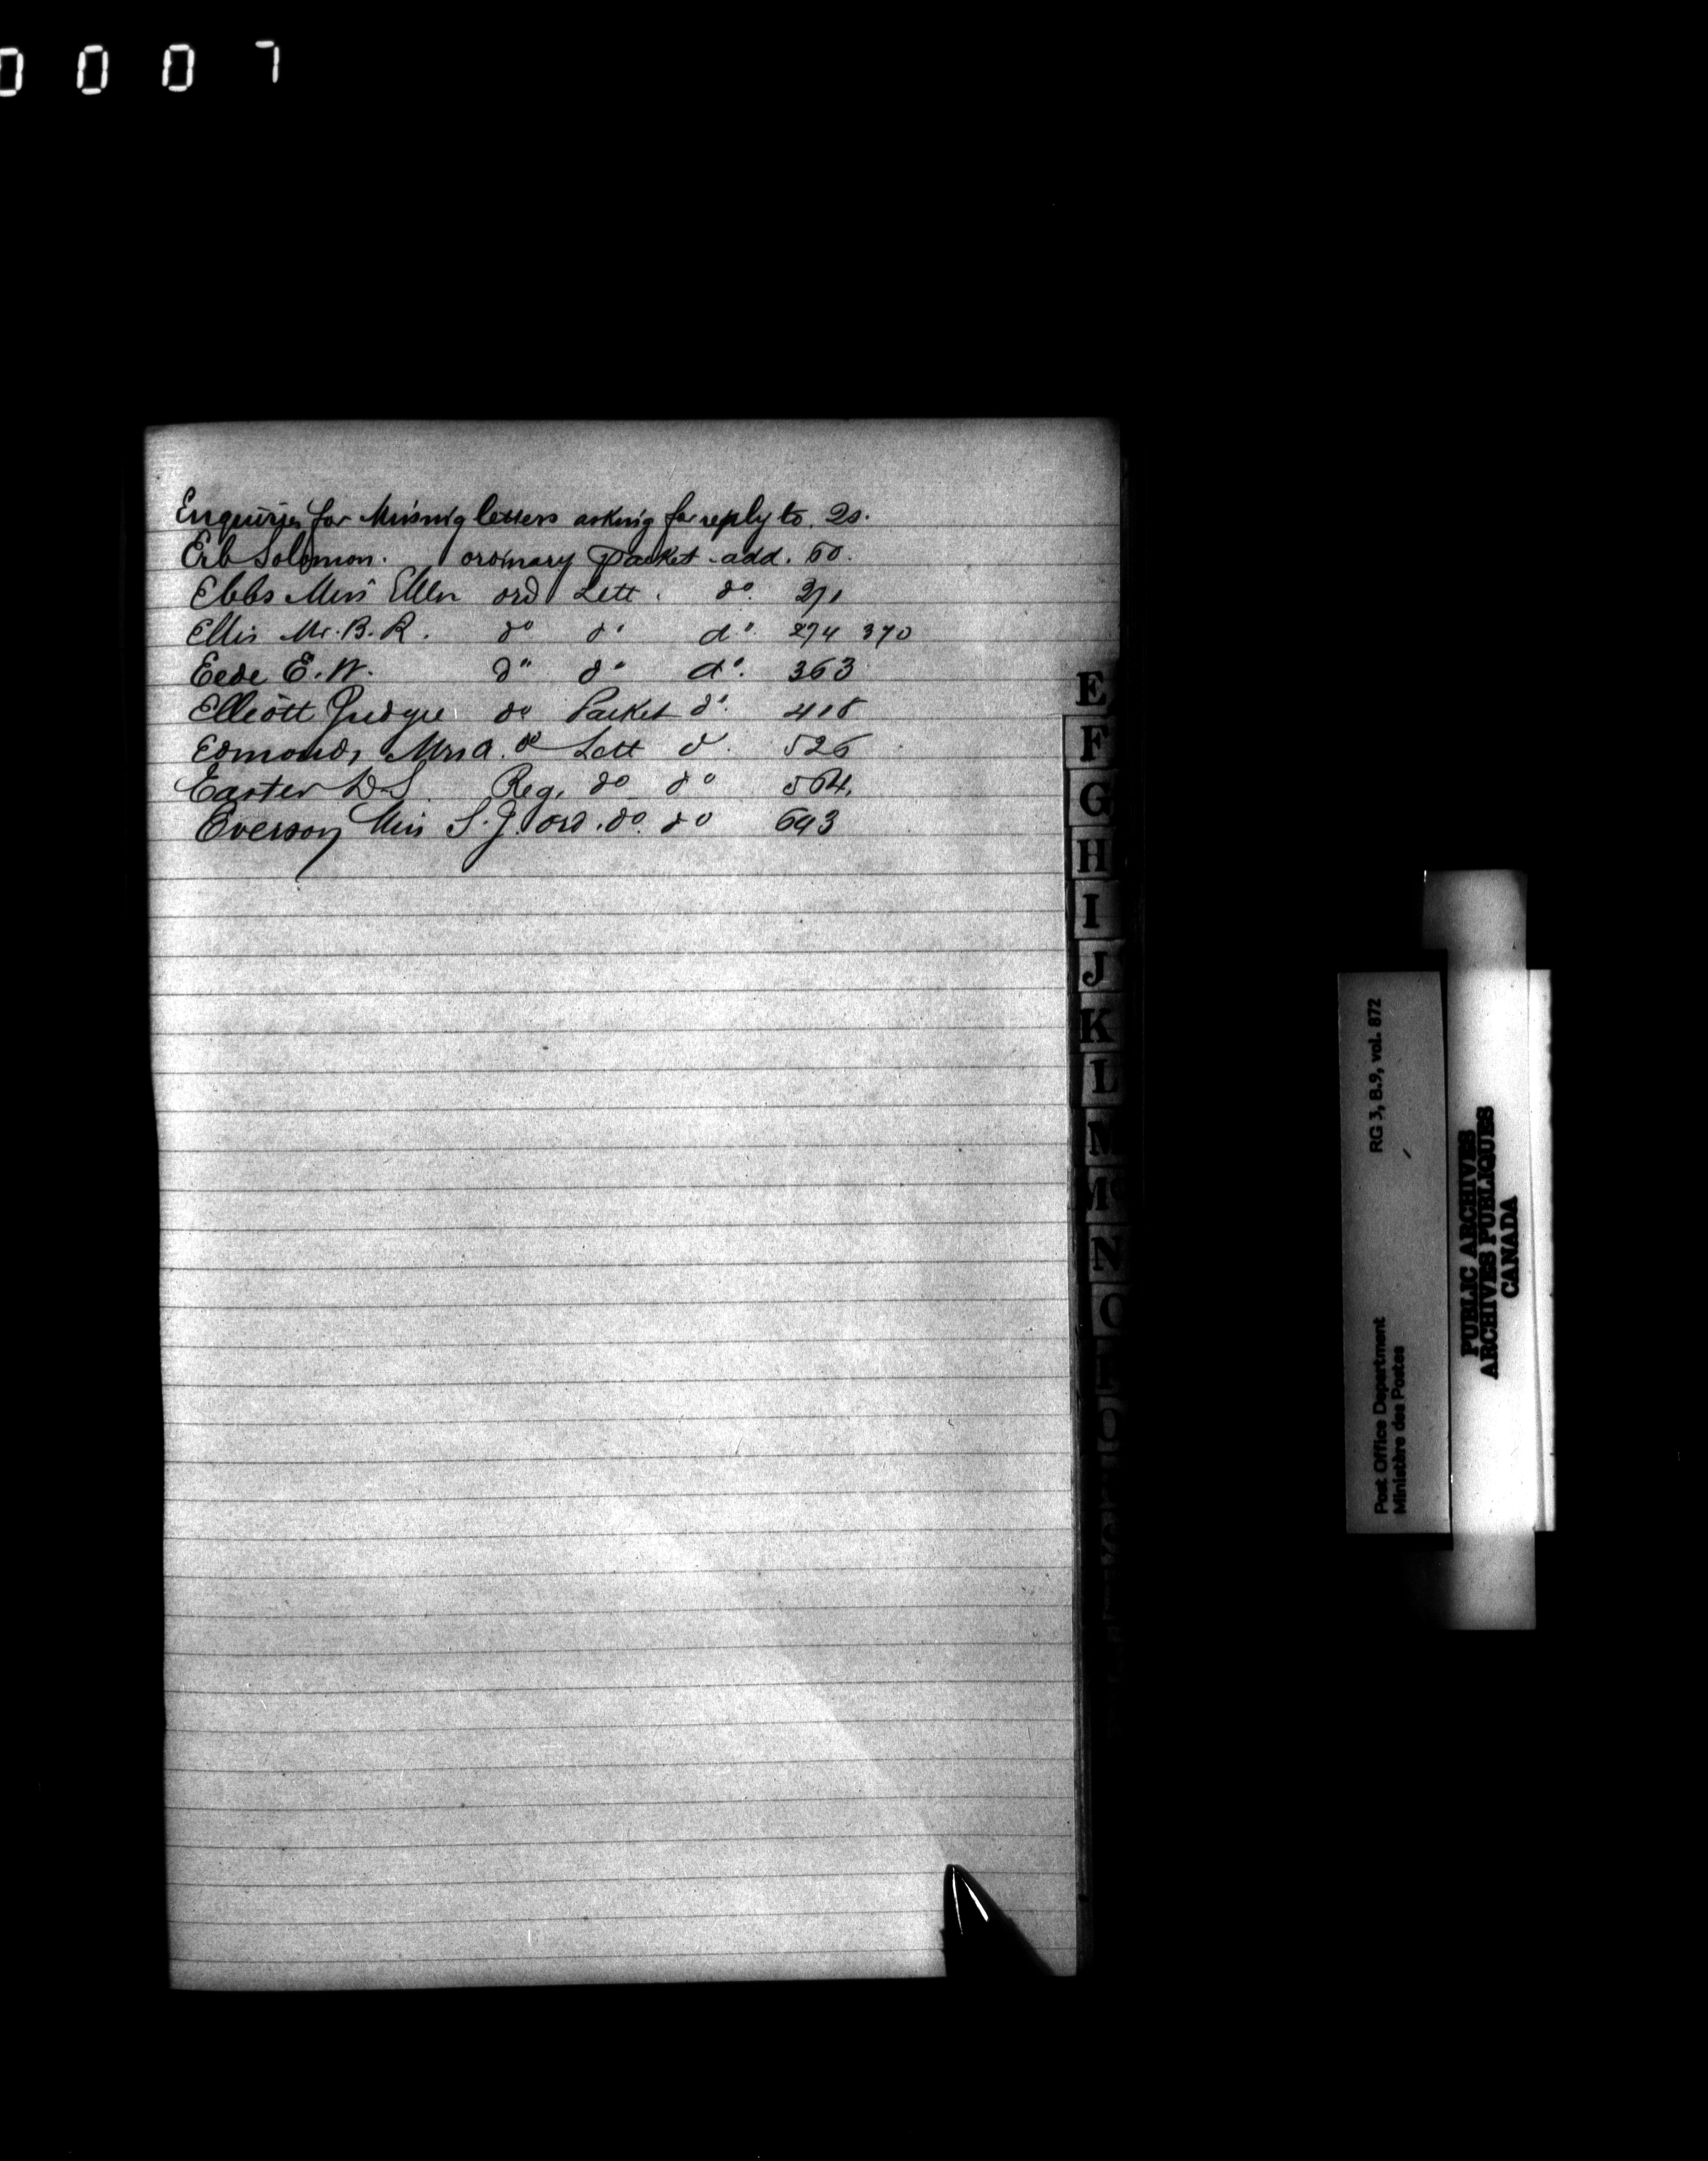 0 0 0 7
Enquiries for Missing letters asking for reply to. 20.
Erb Solomon. ordinary Packet - add. 50.
Ebbs Miss Ellen ord Lett. do. 271
Ellis Mr. B. R. do do do. 274 370
Eede E. W. do do do. 363
Elliott Judge do Packet do. 418
Edmonds, Mrs A. do Lett do. 526
Easter D. S. Reg. do do 564.
Everson Miss S. J. ord. do. do 693
E
F
G
H
I
J
K
L
M
Mc
N
O
RG 3, B.9, vol. 872
Post Office Department
Ministère des Postes
PUBLIC ARCHIVES
ARCHIVES PUBLIQUES
CANADA